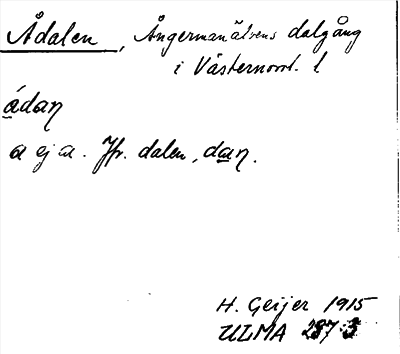 Ådalen, Ångermanälvens dalgång
i Västernorrl. l
ádaƞ
a ej a. Jfr. dalen, daƞ.
H. Geijer 1915
ULMA 287:3